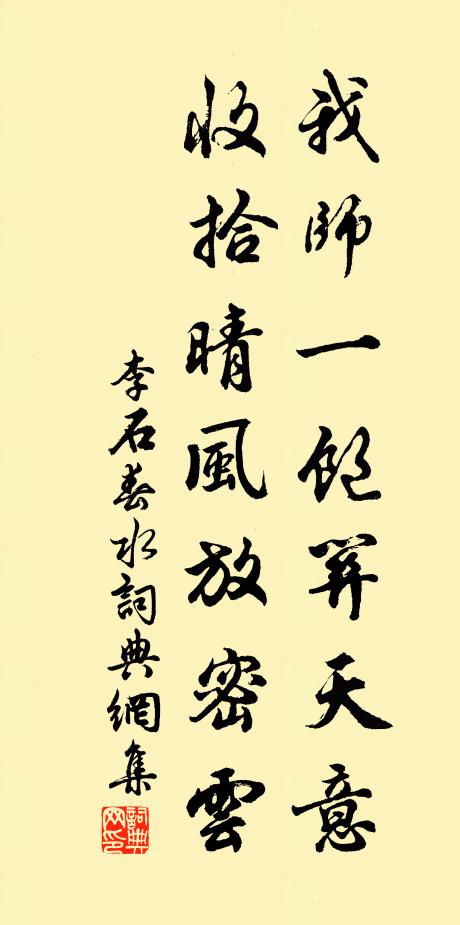 我師一飽關天意
收拾晴風放密雲
李石春水詞典網集
詞典
网印